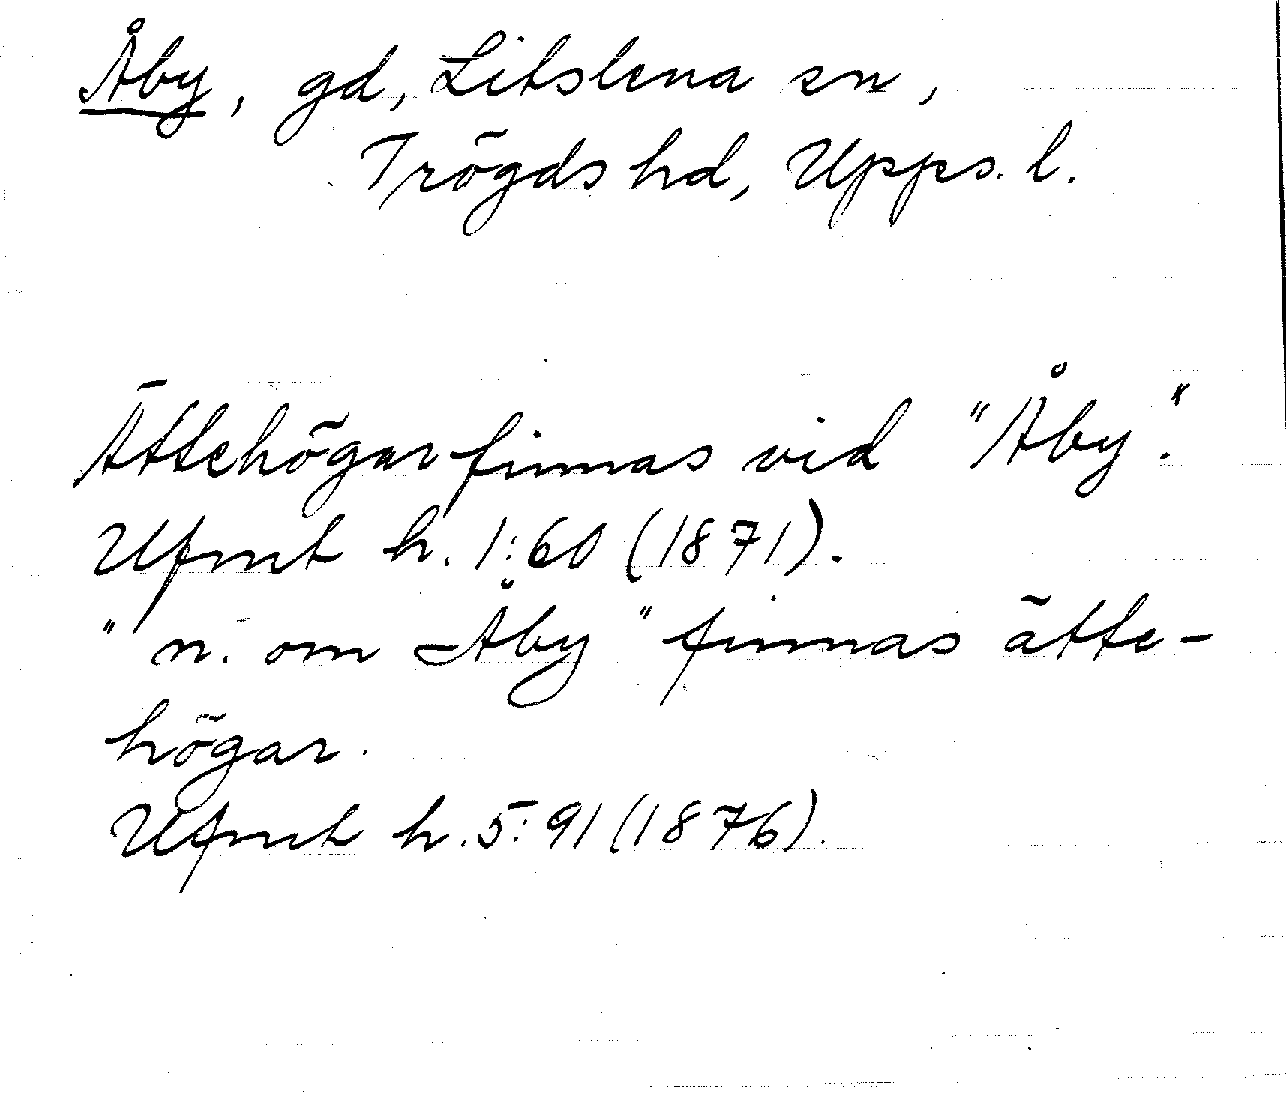 Åby, gd, Litslena sn,
Trögds hd, Upps. l.
Ättehögar finnas vid "Åby".
Ufmt h. 1:60 (1871).
"n. om Åby" finnas ätte-
högar.
Ufmt h. 5:91 (1876).